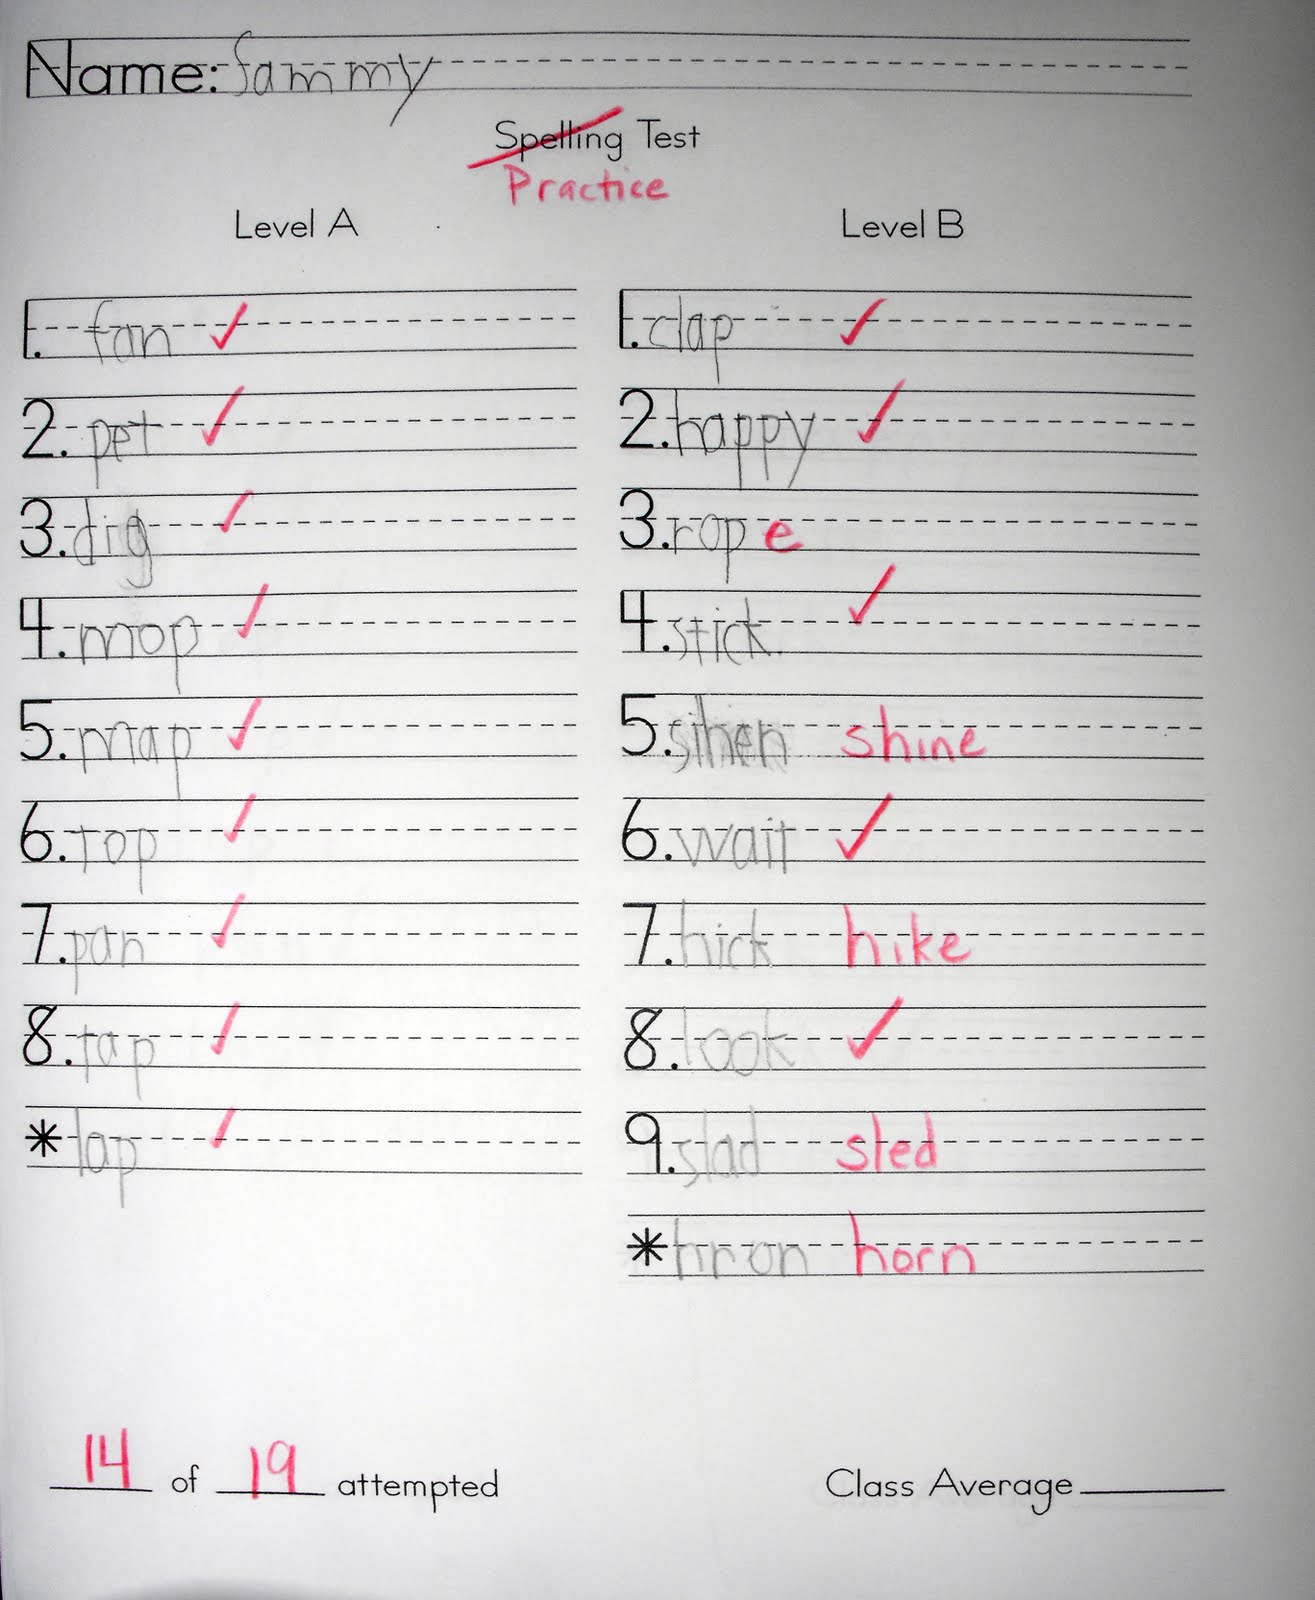 Name: Sammy
Spelling Test
Practice
Level A
1. fan ✓
2. pet ✓
3. dig ✓
4. mop ✓
5. map ✓
6. top ✓
7. pan ✓
8. tap ✓
* lap ✓
Level B
1. clap ✓
2. happy ✓
3. rop e
4. stick ✓
5. sihen shine
6. wait ✓
7. hick hike
8. look ✓
9. slad sled
* hron horn
14 of 19 attempted
Class Average